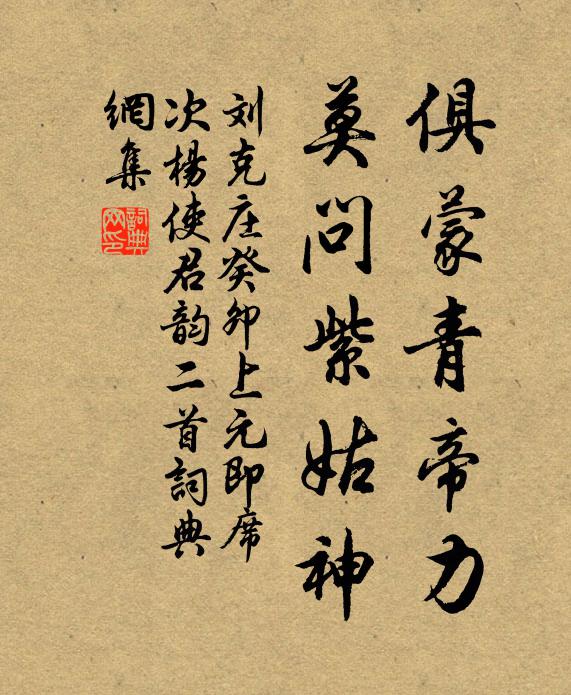 俱蒙青帝力
莫問紫姑神
刘克庄癸卯上元即席
次楊使君韵二首詞典
網集
詞典
网印